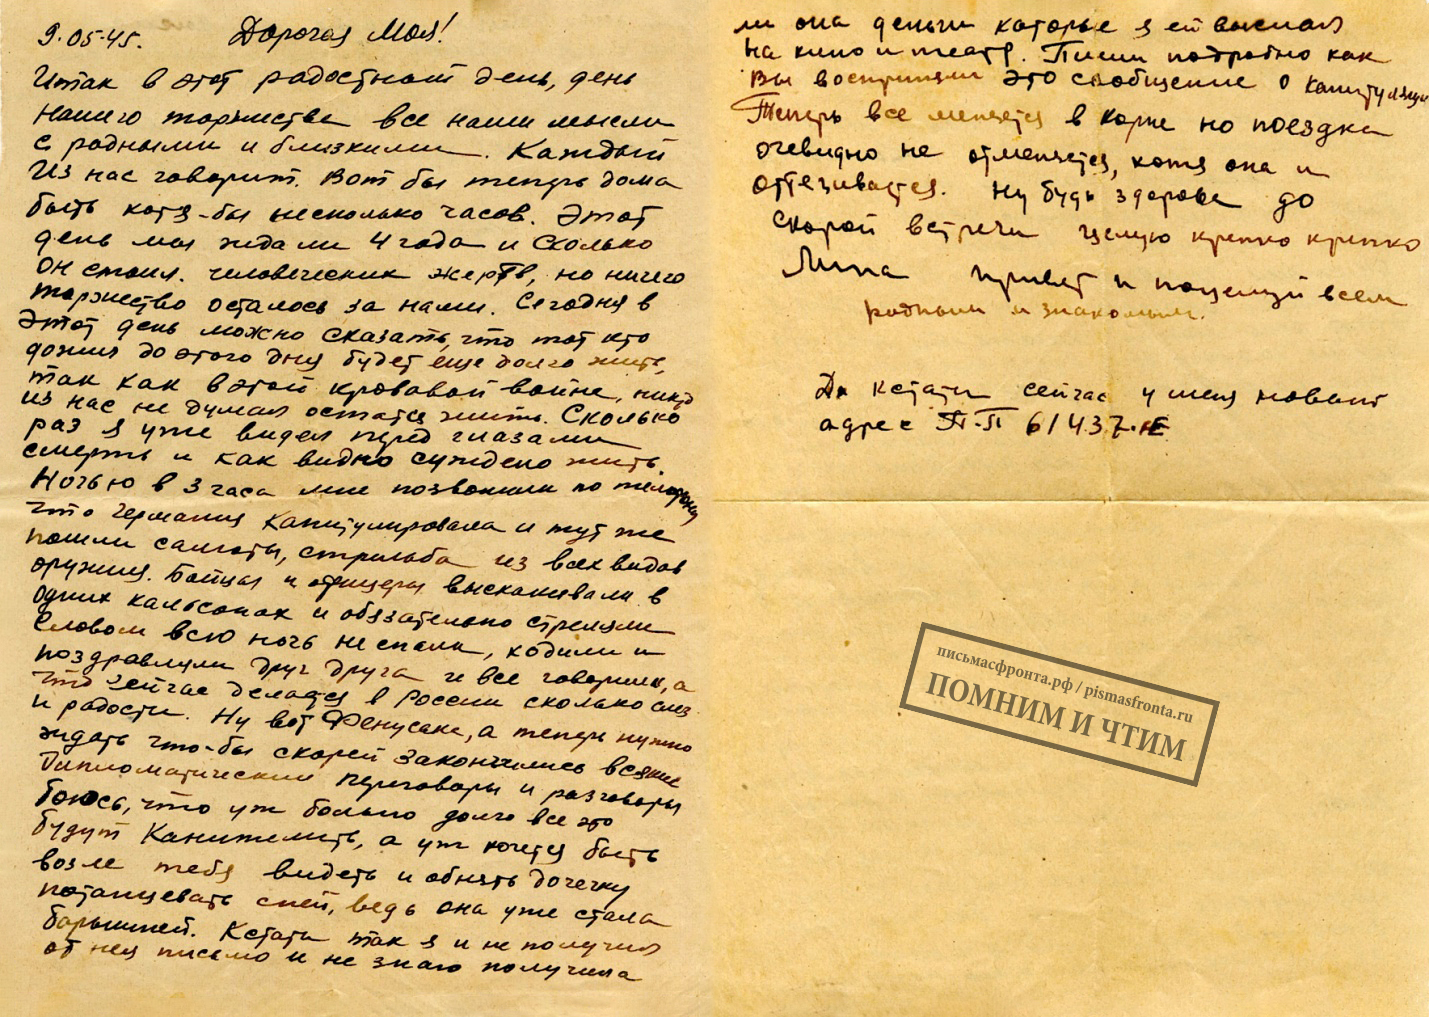 9.05-45. Дорогая Моя!
Итак в этот радостный день, день
нашего торжества все наши мысли
с родными и близкими. Каждый
из нас говорит. Вот бы теперь дома
быть хотя-бы несколько часов. Этот
день мы ждали 4 года и сколько
он стоил человеческих жертв, но ничего
торжество осталось за нами. Сегодня в
этот день можно сказать, что тот кто
дожил до этого дня будет еще долго жить,
так как в этой кровавой войне, никто
из нас не думал остатся жить. Сколько
раз я уже видел перед глазами
смерть и как видно суждено жить.
Ночью в 3 часа мне позвонили по телефону
что Германия капитулировала и тут же
пошли салюты, стрельба из всех видов
оружия. Бойцы и офицеры выскакивали в
одних кальсонах и обязательно стреляли
Словом всю ночь не спали, ходили и
поздравляли друг друга и все говорили, а
что сейчас делается в России сколько слез
и радости. Ну вот Фенусенька, а теперь нужно
ждать что-бы скорей закончились всякие
дипломатические переговоры и разговоры
боюсь, что уж больно долго все это
будут канителить, а уж хочется быть
возле тебя видеть и обнять дочечку
потанцевать с ней, ведь она уже стала
барышней. Кстати так я и не получил
от нея письмо и не знаю получила
ли она деньги которые я ей выслал
на кино и театр. Пиши подробно как
вы восприняли это сообщение о капитуляции
Теперь все меняется в корне но поездка
очевидно не отменяется, хотя она и
оттягивается. Ну будь здорова до
скорой встречи целую крепко крепко
привет и поцелуй всем
родным и знакомым.
Да кстати сейчас у меня новый
адрес П-П 61437-Е
письмасфронта.рф / pismasfronta.ru
ПОМНИМ И ЧТИМ